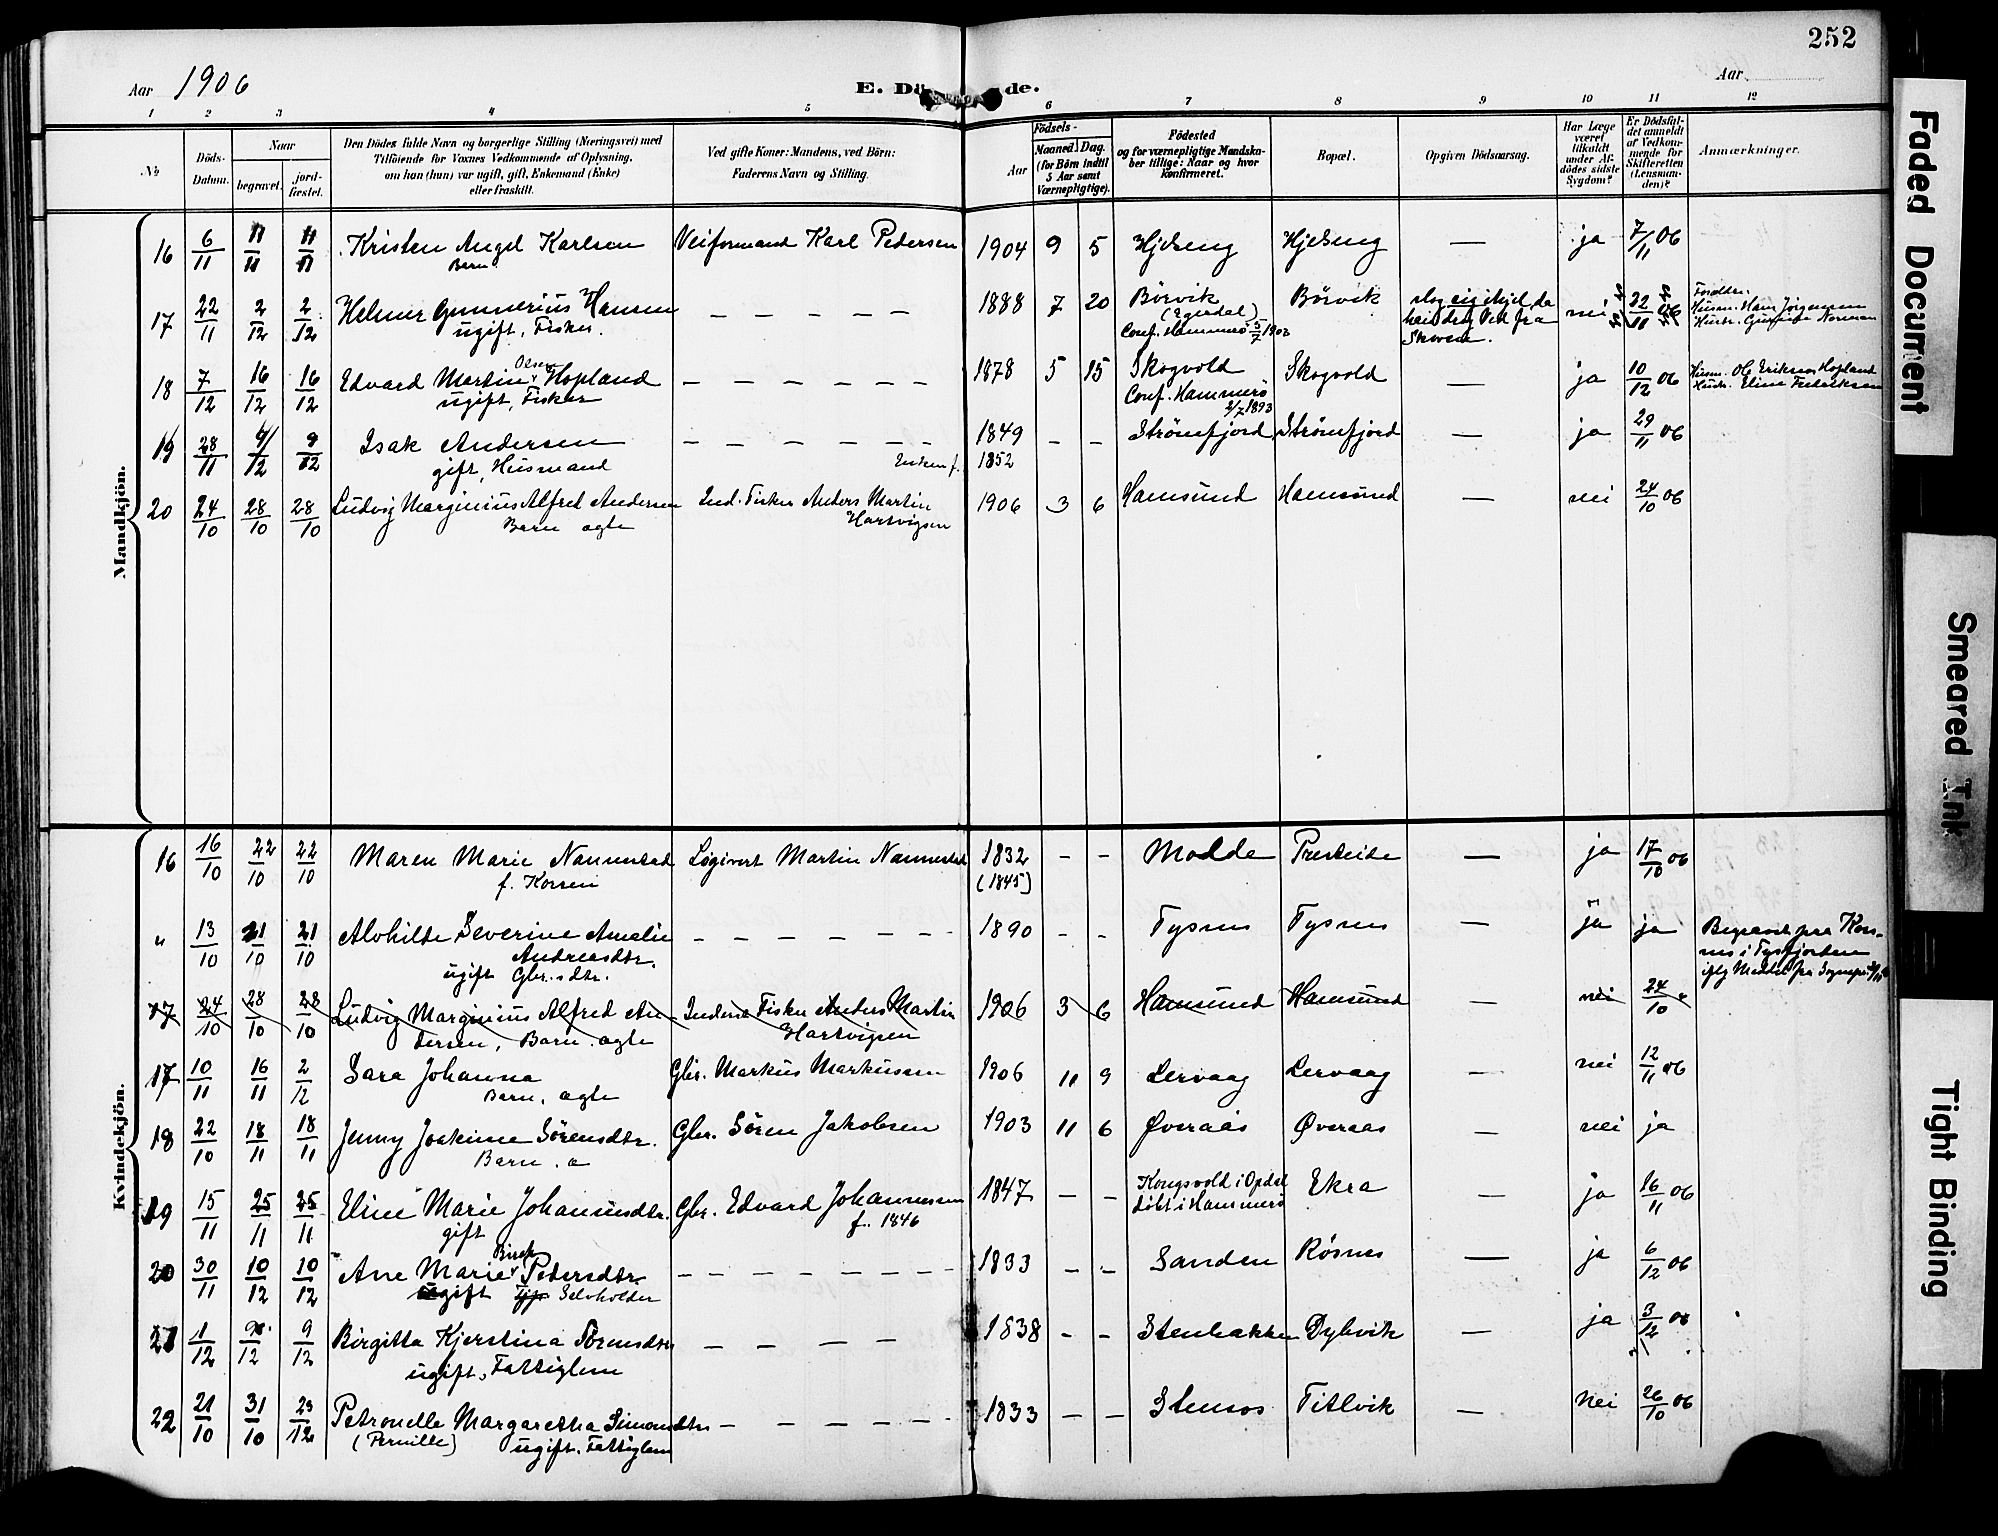 252
Aar 1906
Aar
E. Dö de.
1 2 3 4 5 6 7 8 9 10 11 12
No
Döds-Datum.
Naar
begravet.
jord-fæstet.
Den Dödes fulde Navn og borgerlige Stilling (Næringsvei) med
Tilföiende for Voxnes Vedkommende af Oplysning,
om han (hun) var ugift, gift, Enkemand (Enke)
eller fraskilt.
Ved gifte Koner: Mandens, ved Börn:
Faderens Navn og Stilling.
Födsels-
Aar
Maaned. Dag.
(for Börn indtil
5 Aar samt
Værnepligtige).
Födested
og for værnepligtige Mandska-
ber tillige: Naar og hvor
konfirmeret.
Bopæl.
Opgiven Dödsaarsag.
Har Læge
været
tilkaldt
under Af-
dödes sidste
Sygdom?
Er Dödsfal-
det anmeldt
af Vedkom-
mende for
Skifteretten
(Lensman-
den)?
Anmærkninger.
Mandkjön.
16 6/11 11/11 11/11 Kristen Angel Karlsen Veiformand Karl Pedersen 1904 9 5 Hjelseng Hjelseng — ja 7/11 06
Barn
17 22/11 2/12 2/12 Helmer Gunnerius Hansen — — — — — 1888 7 20 Börvik Börvik slog sig ihjel da nei 22/11 06 Forældre:
ugift, Fisker. (Egerdal) han drog Ved fra Husm. Hans Jørgensen
Conf. Hammerö 5/7 1903 Skoven. Hustr.
18 7/12 16/12 16/12 Edvard Martin Olsen Hopland — — — — — 1878 5 15 Skogvold Skogvold — ja 10/12 06 Husm. Ole Eriksen Hopland
ugift, Fisker Conf. Hammerö Hustr. Eline Fredriksen
2/7 1893
19 28/11 9/12 9/12 Isak Andersen — — — — — — 1849 — — Strömfjord Strömfjord — ja 29/11 06
gift, Husmand f. 1852
20 24/10 28/10 28/10 Ludvig Marginius Alfred Andersen Ind. Fisker Anders Martin 1906 3 6 Hamsund Hamsund — nei 24/10 06
Barn ægte Hartvigsen
Kvindekjön.
16 16/10 22/10 22/10 Maren Marie Nannestad Logivert Martin Nannestad 1832 — — Molde Presteide — ja 17/10 06
f. Korsen (1845)
" 13/10 21/10 21/10 Alvhilde Severine Amalie — — — — — — 1890 - - Tysnes Tysnes — ja ja Begravet paa Kors-
Andreasdtr. nes i Tysfjorden
ugift Gbr.sdtr. iflg Meddel. fra Sognepr.
17 24/10 28/10 28/10 Ludvig Marginius Alfred An- Inderst Fisker Anders Martin 1906 3 6 Hamsund Hamsund — nei 24/10
dersen, Barn ægte Hartvigsen
17 10/11 16/11 2/12 Sara Johanna Gbr. Markus Markussen 1906 11 9 Lervaag Lervaag — nei 12/11 06
Barn, ægte
18 22/10 18/11 18/11 Jenny Joakime Sörensdtr. Gbr. Sören Jakobsen 1903 11 6 Överaas Överaas — nei ja
Barn. æ
19 15/11 25/11 25/11 Eline Marie Johannesdtr. Gbr. Edvard Johannessen 1847 — — Kongsvold i Opdal Ekra — ja 16/11 06
gift f. 1846 döbt i Hammerö
20 30/11 10/12 10/12 Ane Marie Birch Petersdtr. — — — — — — — 1833 — — Sanden Rösnes — ja 6/12 06
ugift Selvholder
21 1/12 9/12 9/12 Birgitta Kjerstina Sörensdtr — — — — 1838 — — Stenbakken Dybvik — ja 3/12 06
ugift, Fattiglem
22 21/10 31/10 23/12 Petronelle Margaretha Simonsdtr — — — — — — 1833 — — Stensos Titlvik — nei 26/10 06
(Pernille) ugift. Fattiglem
Faded Document
Smeared Ink
Tight Binding